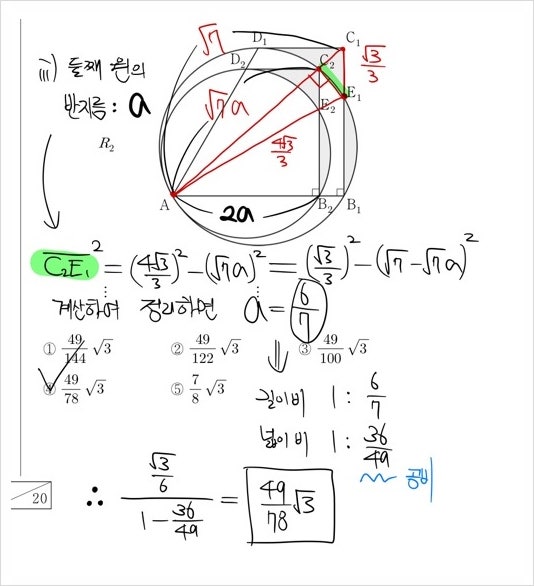 √7 D₁ C₁
ⅲ) 둘째 원의 D₂ C₂ √3/3
반지름 : a √7a E₁
R₂ E₂ 4√3/3
A 2a B₂ B₁
C₂E₁² = (4√3/3)² - (√7a)² = (√3/3)² - (√7 - √7a)²
계산하여 정리하면 a = 6/7
① 49/144 √3 ② 49/122 √3 ③ 49/100 √3
④ 49/78 √3 ⑤ 7/8 √3
길이비 1 : 6/7
넓이비 1 : 36/49
공비
20 ∴ (√3/6)/(1 - 36/49) = 49/78 √3